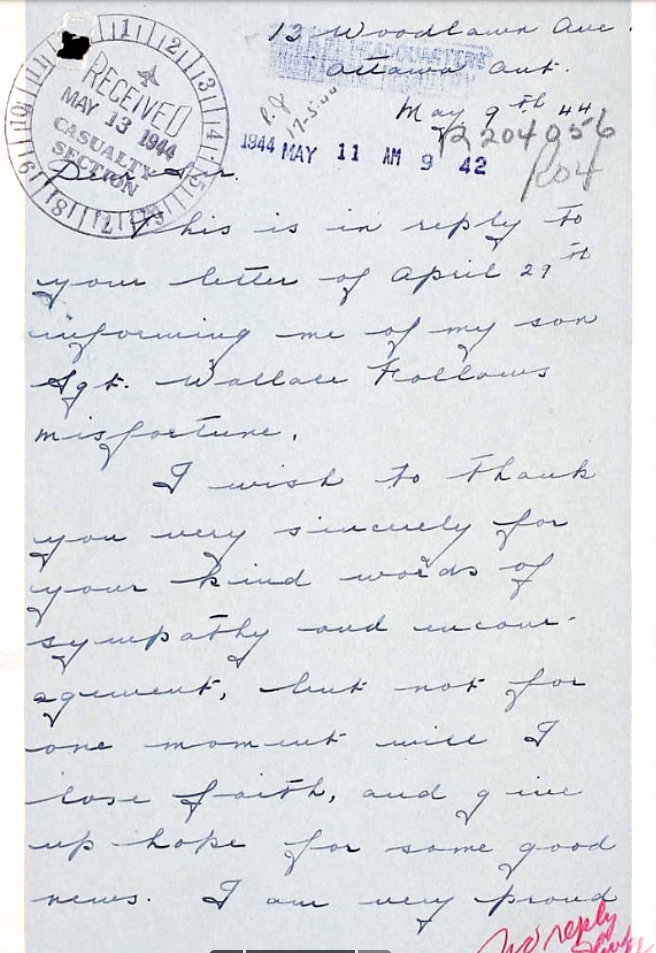 13 Woodlawn Ave.
HEADQUARTERS
Ottawa Ont.
May 9th 44
R204056
R04
P.J
17-5-44
1944 MAY 11 AM 9 42
RECEIVED
MAY 13 1944
CASUALTY
SECTION
1 2 3 4 5 7 8 9 10 11
Dear Sir.
This is in reply to
your letter of April 29th
informing me of my son
Sgt. Wallace Fallows
misfortune.
I wish to thank
you very sincerely for
your kind words of
sympathy and encour-
agement, but not for
one moment will I
lose faith, and give
up hope for some good
news. I am very proud
No reply